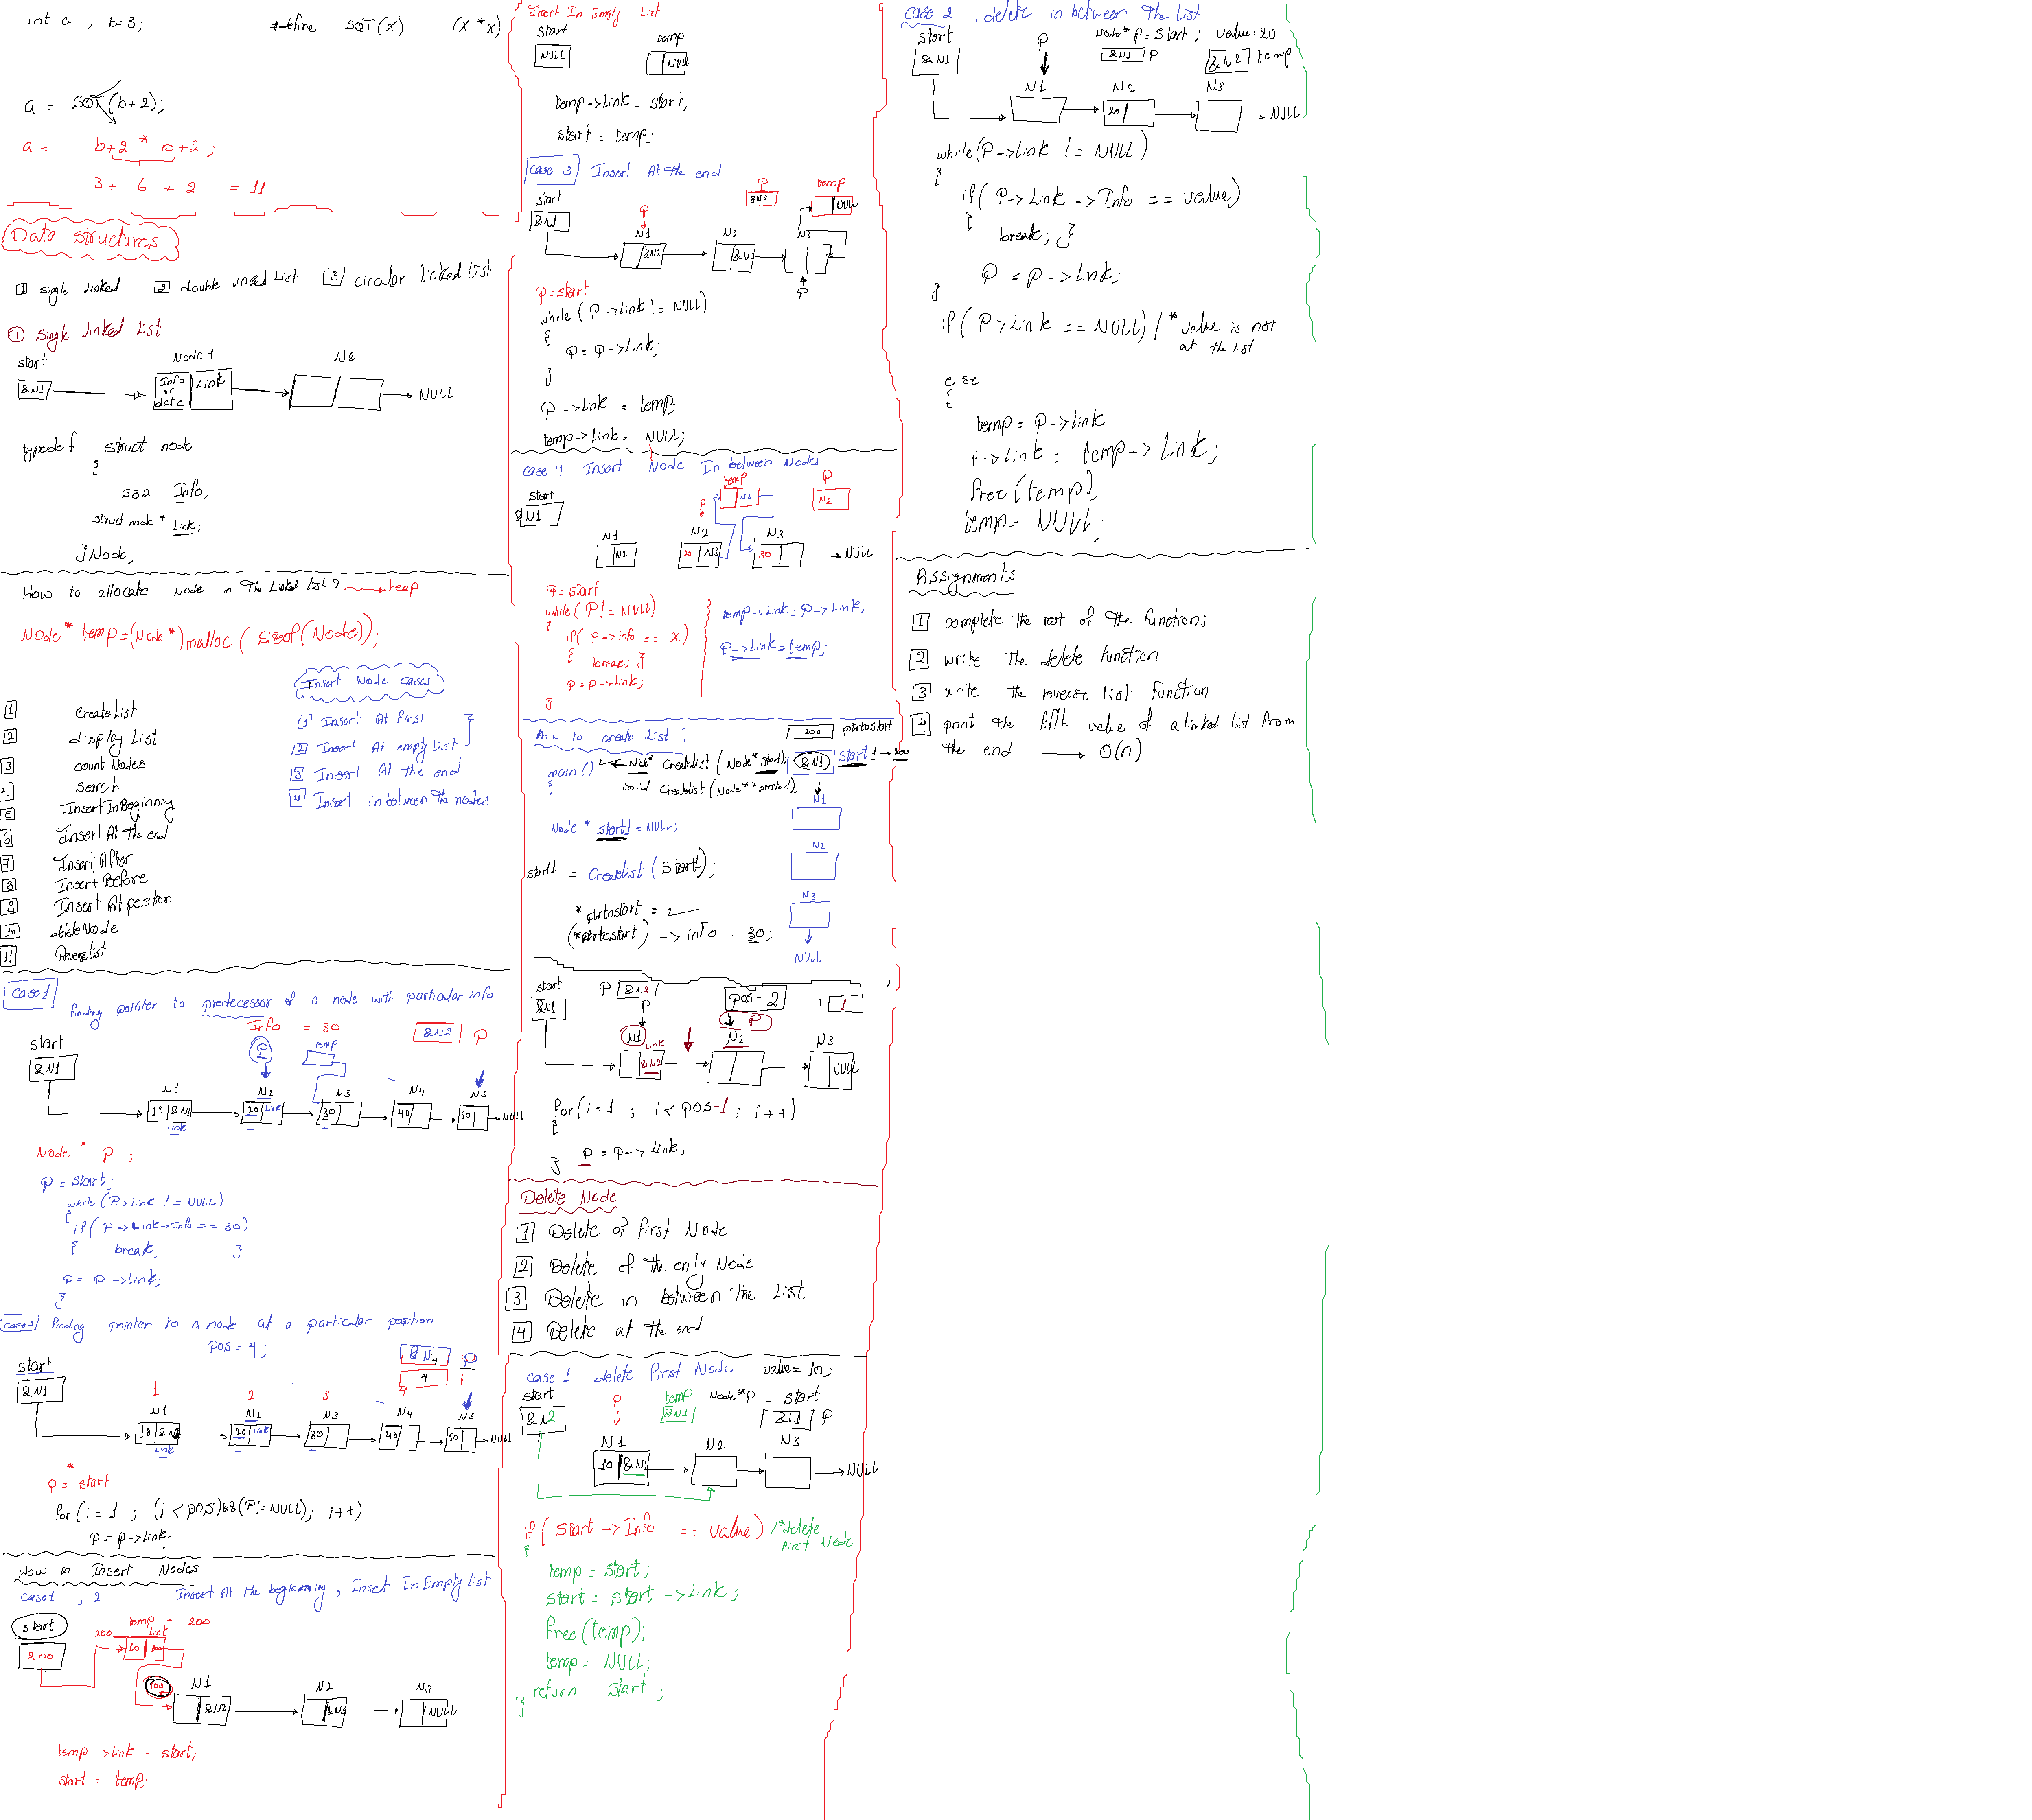 int a , b=3;
#define SQT(x) (x*x)
a = SQT(b+2);
a = b+2 * b+2 ;
3 + 6 + 2 = 11
Data Structures
1 single Linked 2 double linked List 3 circular linked list
1 Single Linked List
start
Node 1
N2
&N1
Info or date
Link
NULL
typedef struct node
{
s32 Info;
struct node * Link;
}Node;
How to allocate Node in The Linked List? heap
Node* temp=(Node*)malloc(sizeof(Node));
Insert Node cases
1 Insert At first
2 Insert At empty list
3 Insert At the end
4 Insert in between The nodes
1 createList
2 display List
3 count Nodes
4 Search
5 InsertInBeginning
6 Insert At The end
7 Insert After
8 Insert Before
9 Insert At position
10 deleteNode
11 Reverselist
case1
finding pointer to predecessor of a node with particular info
Info = 30
&N2 P
P temp
start
&N1
N1 N2 N3 N4 N5
10 &N1 20 Link 30 40 50 NULL
Link
Node * P ;
P = start;
while (P->Link != NULL)
{
if( P->Link->Info == 30)
{ break; }
P = P ->Link;
}
case1 finding pointer to a node at a particular position
pos = 4;
&N4 P
4 i
start
&N1
1 2 3 4
N1 N2 N3 N4 N5
10 20 Link 30 40 50 NULL
Link
P = start
for(i=1 ; (i<pos)&&(P!=NULL); i++)
P = P->Link;
How to Insert Nodes
case1 , 2 Insert At the beginning , Inset In Empty list
start
200
temp = 200
200 Link
10 100
100
N1 N2 N3
&N2 &N3 NULL
temp ->Link = start;
start = temp;
Insert In Empty List
start temp
NULL NULL
temp->Link = start;
start = temp;
case 3 Insert At the end
start
&N1
P
&N3
temp
NULL
P
N1 N2 N3
&N2 &N3
P
P=start
while (P->Link != NULL)
{
P = P->Link;
}
P ->Link = temp;
temp->Link = NULL;
case 4 Insert Node In between Nodes
start
&N1
temp
N3
P
N2
P
N1 N2 N3
N2 20 N3 30 NULL
P=start
while(P!= NULL)
{
if( P->info == x)
{
break; }
P = P->Link;
}
temp->Link = P->Link;
P->Link = temp;
How to create List ?
200 ptrtostart
main() Node* Createlist (Node* start);
&N1 start1 200
{ void Createlist (Node** ptrstart);
N1
Node * start1 = NULL;
N2
start1 = Createlist (Start1);
N3
*ptrtostart =
(*ptrtostart) -> info = 30;
NULL
start
&N1
P &N2
P
pos = 2
i 1
P
N1 Link N2 N3
&N2 NULL
for(i=1 ; i<pos-1 ; i++)
{
P = P->Link;
}
Delete Node
1 Delete of first Node
2 Delete of the only Node
3 Delete in between the List
4 Delete at the end
case 1 delete First Node value= 10;
start
&N2
P
temp
&N1
Node*P = start
&N1 P
N1 N2 N3
10 NULL
if( Start ->Info == value) /*delete first Node
{
temp = start;
start = start ->Link;
free(temp);
temp = NULL;
return start ;
}
case 2 ; delete in between The list
start
&N1
P
Node* P = Start ; value=20
&N1 P
&N2 temp
N1 N2 N3
20 NULL
while(P->Link != NULL)
{
if( P->Link ->Info == value)
{
break; }
P = P->Link;
}
if( P->Link == NULL) /*value is not at the list
else
{
temp = P->Link
P->Link = temp->Link;
free(temp);
temp= NULL;
Assignments
1 complete the rest of the functions
2 write the delete function
3 write the reverse list function
4 print the fifth value of a linked list from
the end O(n)